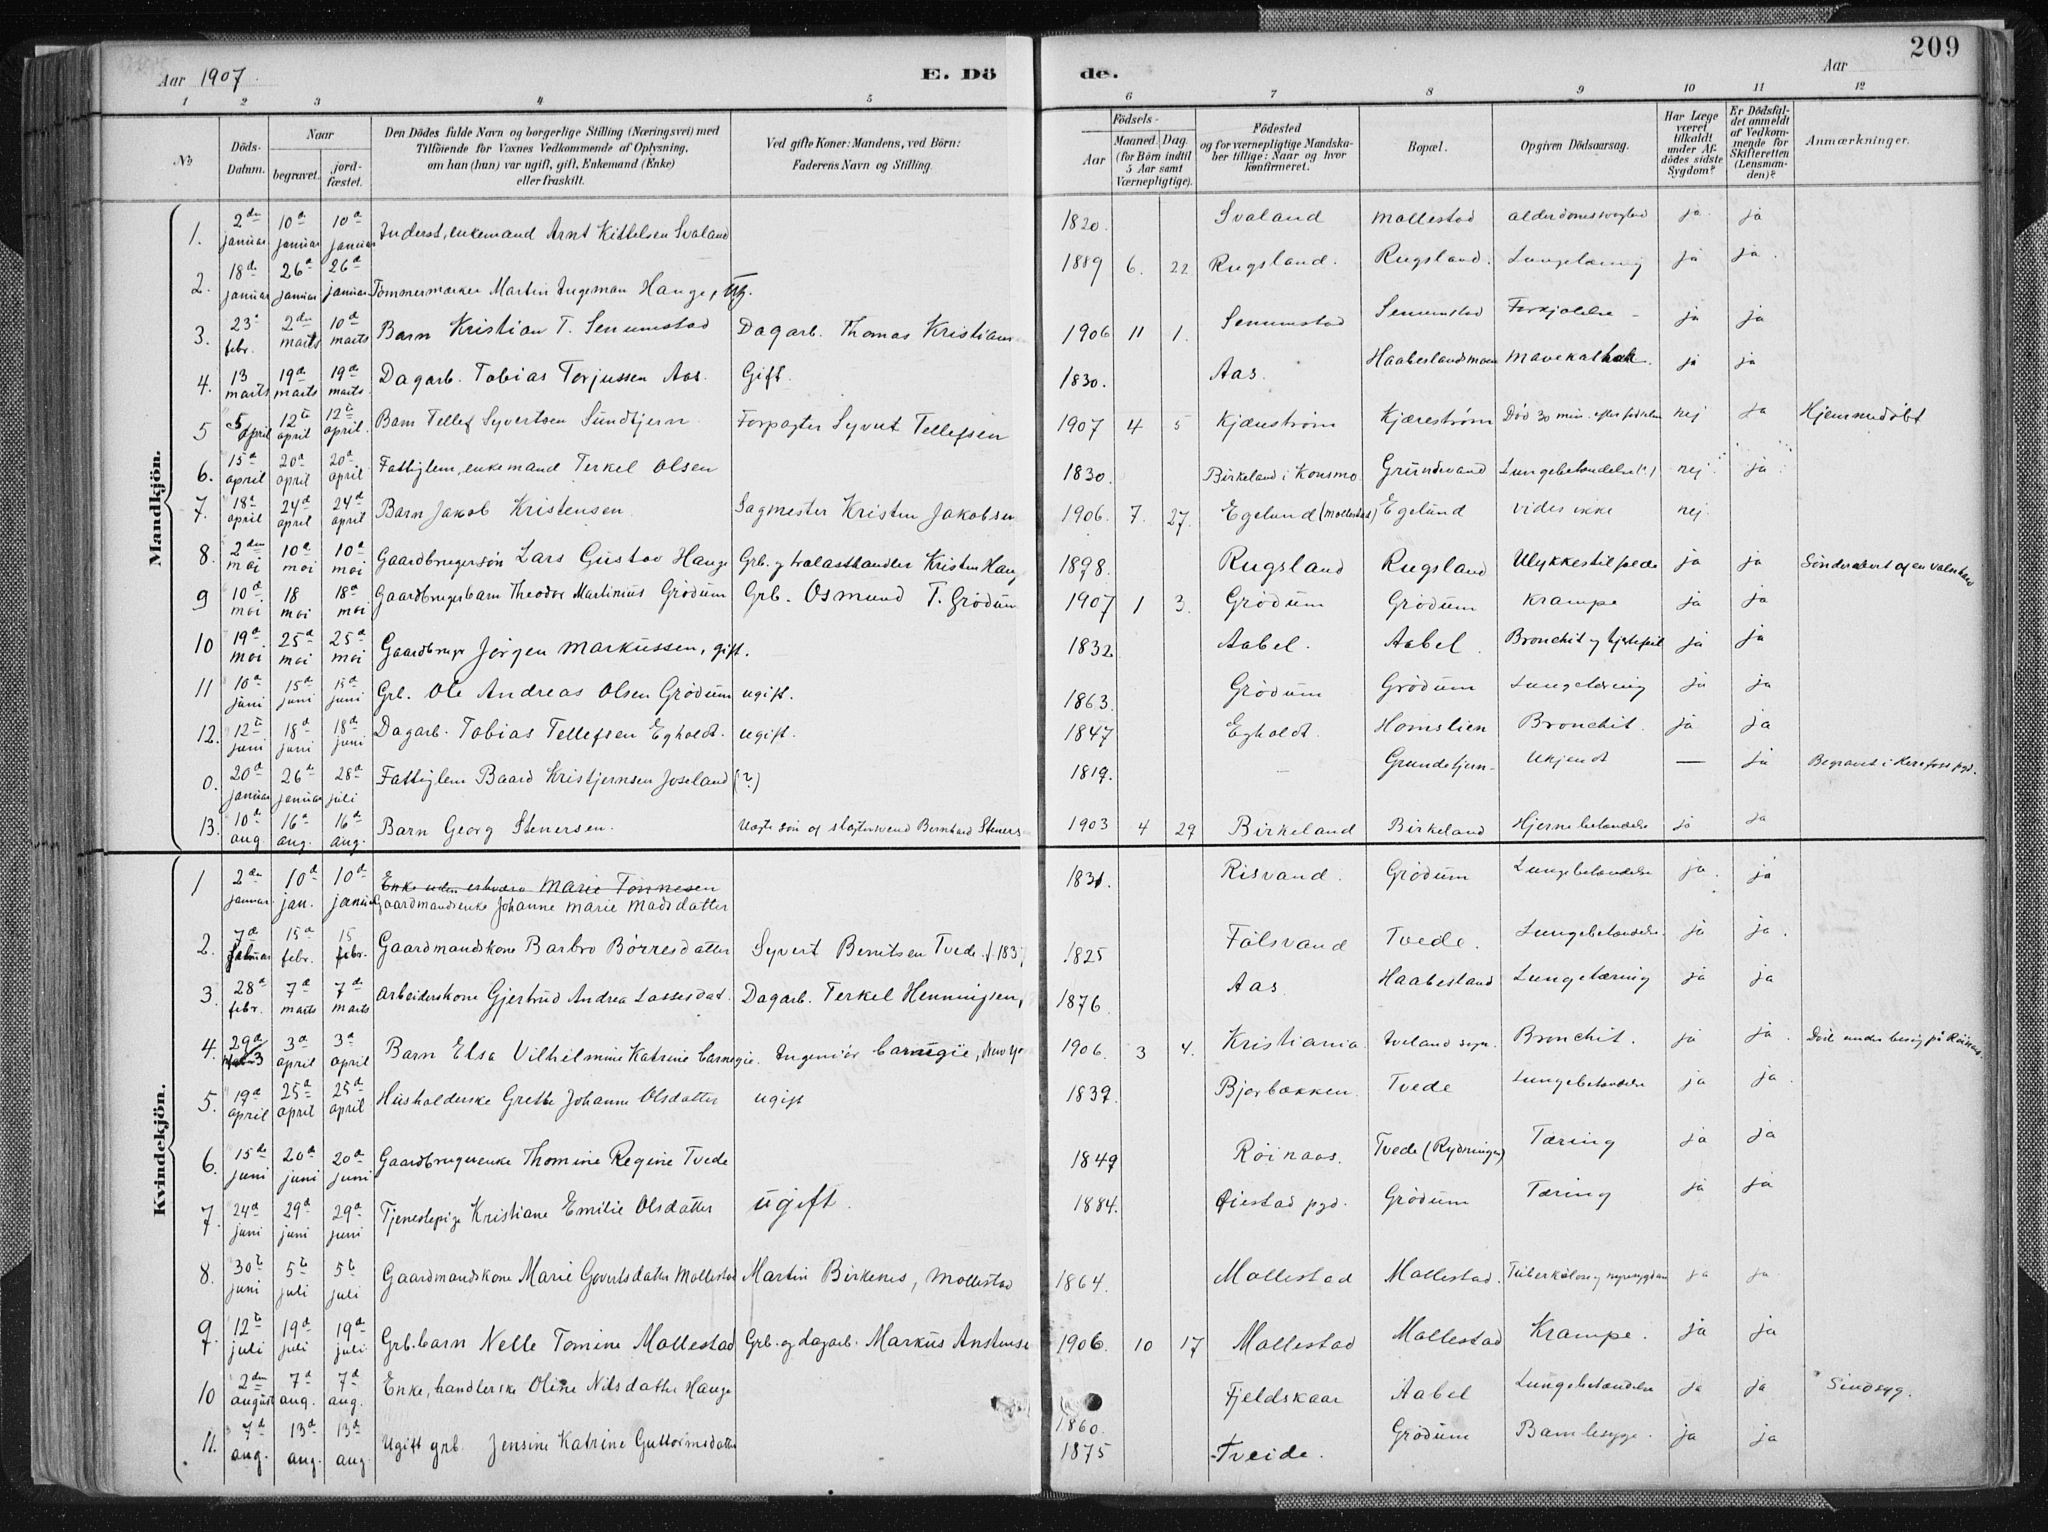 Aar 1907. E. Dö de. Aar 209
1 2 3 4 5 6 7 8 9 10 11 12
No
Döds-Datum.
Naar
begravet.
jord-fæstet.
Den Dödes fulde Navn og borgerlige Stilling (Næringsvei) med
Tilföiende for Voxnes Vedkommende af Oplysning,
om han (hun) var ugift, gift, Enkemand (Enke)
eller fraskilt.
Ved gifte Koner: Mandens, ved Börn:
Faderens Navn og Stilling.
Födsels-
Aar
Maaned. Dag.
(for Börn indtil 5 Aar samt Værnepligtige).
Födested
og for værnepligtige Mandskaber tillige: Naar og hvor konfirmeret.
Bopæl.
Opgiven Dödsaarsag.
Har Læge været tilkaldt under Afdödes sidste Sygdom?
Er Dödsfaldet anmeldt af Vedkommende for Skifteretten (Lensmanden)?
Anmærkninger.
Mandkjön.
1. 2den januar 10d januar 10d januar Inderst, enkemand Arnt Kittelsen Svaland 1820. Svaland Mollestad ja ja
2. 18de januar 26d januar 26d januar Tømmermærker Martin Ingeman Hauge, 1889 6. 22 Rugsland. Rugsland. Lungetæring ja ja.
3. 23d febr. 2den marts 10d marts Barn Kristian T. Senumstad Dagarb. Thomas Kristians 1906 11 1. Senumstad Senumstad Forkjølelse ja ja
4. 13 marts 19d marts 19d marts Dagarb. Tobias Torjussen Aas. Gift. 1830. Aas. Haabeslandsmoen Mavekatarrh. ja ja
5 5 april 12t april 12t april. Barn Tellef Syvertsen Sundtjern Forpagter Syvert Tellefsen 1907 4 5 Kjærestrøm Kjærestrøm Død 30 min. efter fødselen nej ja Hjemmedøbt
6. 15d april 20d april 20d april Fattiglem, enkemand Terkel Olsen 1830. Birkeland i Konsmo. Lungebetændelse(?) nej ja
7. 18d april 24d april 24d april Barn Jakob Kristensen. Sagmester Kristen Jakobsen 1906. 7. 27. Egeland (Mollestad) Egeland vides ikke nej.
8. 2den mai 10d mai 10d mai Gaardbrugersøn Lars Gustav Hauge Grb. og trælasthandler Kristen Haug 1898. Rugsland Rugsland Ulykkestilfælde ja ja
9 10d. mai 18 mai 18d mai Gaardbrugerbarn Theodor Martinius Grødum Grb. Osmund T. Grødum 1907 1 3. Grødum Grødum Krampe ja ja
10 19d mai 25d mai 25d mai Gaardbruger Jørgen Markussen, gift. 1832 Aabel. Aabel. Bronchit og hjertefeil ja ja
11 10d juni 15d juni 15d juni Grb. Ole Andreas Olsen Grødum ugift. 1863. Grødum Grødum Lungetæring ja ja
12. 12t juni 18d juni 18d juni Dagarb. Tobias Tellefsen Egholdt. ugift. 1847 Egholdt. Homslien Bronchit. ja ja
0. 20d januar 26d januar 28d juli Fattiglem Baard Kristjernsen Joseland (?) 1819. — Grundetjern Ukjendt — ja Begravet i Herefoss pgd.
13. 10d aug. 16d aug. 16d aug. Barn Georg Stenersen. Uægte søn af slagtersvend Bernhard Steners 1903 4 29 Birkeland Birkeland Hjernebetændelse ja ja
Kvindekjön.
1 2den januar. 10d jan. 10d januar Enke uden erhverv Marie Tønnesen
Gaardmandsenke Johanne Marie Madsdatter 1831. Risvand. Grødum Lungebetændelse ja. ja
2. 7d 15d febr. 15 febr. Gaardmandskone Barbro Børresdatter Syvert Berntsen Tvede f. 1837 1825 Følsvand Tvede. Lungebetændelse. ja ja.
3. 28d febr. 7de marts 7de marts Arbeiderskone Gjertrud Andrea Lassesdat. Dagarb. Terkel Henningsen, 1876. Aas. Haabesland Lungetæring ja ja
4. 29d 3d april 3d april Barn Elsa Vilhelmine Katrine Carnegie. Ingeniør Carnegie, New Yo 1906. 3 4. Kristiania Iveland sogn. Bronchit. ja ja.
5. 19d april 25d april 25d april Husholderske Grethe Johanne Olsdatter ugift 1839. Bjorbækken. Tvede Lungebetændelse ja ja
6. 15de juni 20d juni 20d juni Gaardbrugerenke Thomine Regine Tvede 1849 Røinaas. Tvede (Rydningen) Tæring ja ja
7. 24d juni 29d juni 29d juni Tjenestepige Kristiane Emilie Olsdatter ugift. 1884. Øiestad pgd. Grødum Tæring ja ja
8. 30t juni 5t juli 5t juli Gaardmandskone Marie Govertsdatter Mollestad Martin Birkenes, Mollestad 1864. Mollestad Mollestad. ja ja
9. 12t juli 19d juli 19d juli Grb.barn Nelle Tomine Mollestad Grb. og dagarb. Markus Anstense 1906. 10 17 Mollestad Mollestad Krampe. ja ja
10 2den august 7d aug. 7d aug. Enke, handlerske Oline Nilsdatter Hauge 1860. Fjeldskaar Aabel Lungebetændelse ja ja Sindsyg.
11. 7d aug. 13d aug. 13d aug. Ugift grb. Jensine Katrine Guttormsdatter 1875 Tveide. Grødum Barnlesyge. ja ja